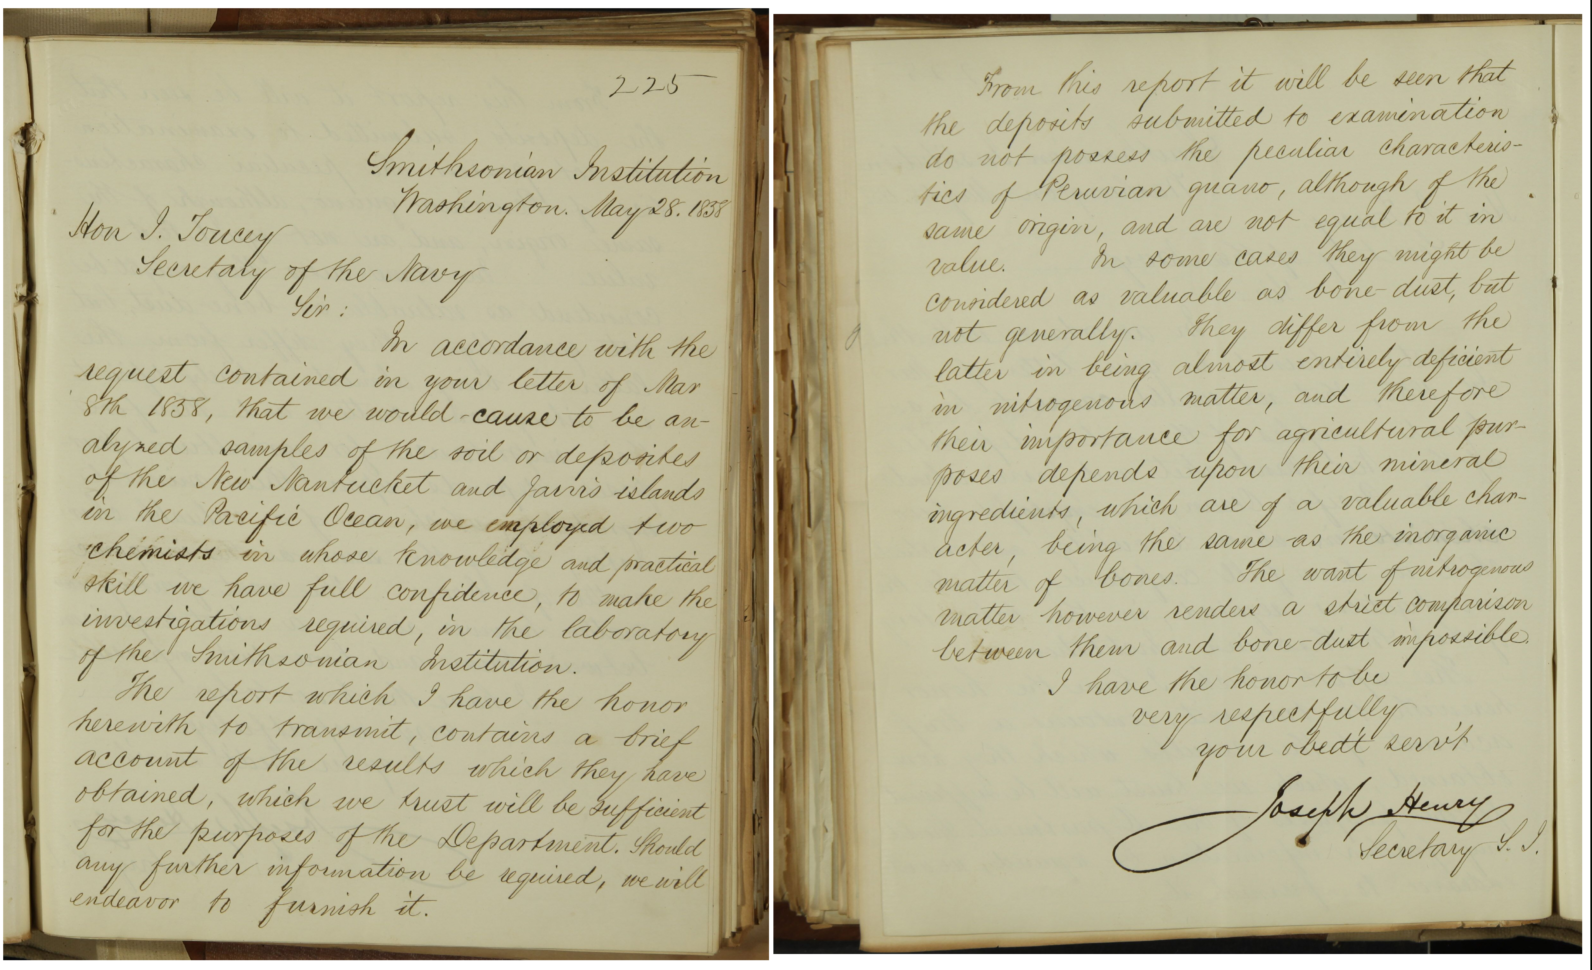 225
Smithsonian Institution
Washington. May 28. 1858
Hon I. Toucey
Secretary of the Navy
Sir:
In accordance with the
request contained in your letter of Mar
8th 1858, that we would cause to be an-
alyzed samples of the soil or deposites
of the New Nantucket and Jarvis islands
in the Pacific Ocean, we employed two
chemists in whose knowledge and practical
skill we have full confidence, to make the
investigations required, in the laboratory
of the Smithsonian Institution.
The report which I have the honor
herewith to transmit, contains a brief
account of the results which they have
obtained, which we trust will be sufficient
for the purposes of the Department. Should
any further information be required, we will
endeavor to furnish it.
From this report it will be seen that
the deposits submitted to examination
do not possess the peculiar characteris-
tics of Peruvian guano, although of the
same origin, and are not equal to it in
value. In some cases they might be
considered as valuable as bone-dust, but
not generally. They differ from the
latter in being almost entirely deficient
in nitrogenous matter, and therefore
their importance for agricultural pur-
poses depends upon their mineral
ingredients, which are of a valuable char-
acter, being the same as the inorganic
matter of bones. The want of nitrogenous
matter however renders a strict comparison
between them and bone-dust impossible.
I have the honor to be
very respectfully
your obed't serv't
Joseph Henry
Secretary S. I.